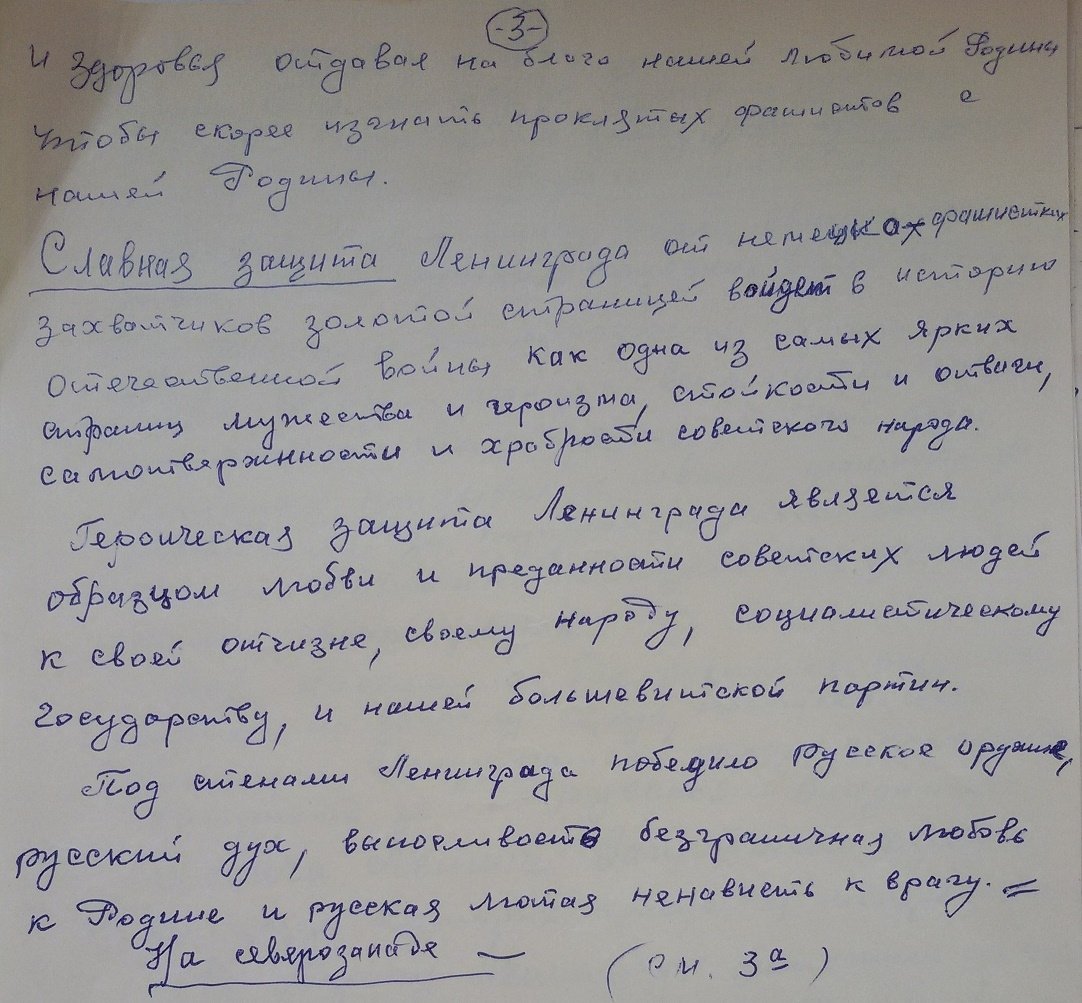 -3-
и здоровья отдавая на благо нашей любимой Родины
Чтобы скорее изгнать проклятых фашистов с
нашей Родины.
Славная защита Ленинграда от немецко-фашистких
захватчиков золотой страницей войдет в историю
отечественной войны как одна из самых ярких
страниц мужества и героизма, стойкости и отваги,
самотвержнности и храбрости советского народа.
Героическая защита Ленинграда является
образцом любви и преданности советских людей
к своей отчизне, своему народу, социалистическому
государству, и нашей большевитской партии.
Под стенами Ленинграда победило русское оружие,
русский дух, выносливость безграничная любовь
к Родине и русская лютая ненависть к врагу. =
На северозападе —
(см. 3а)